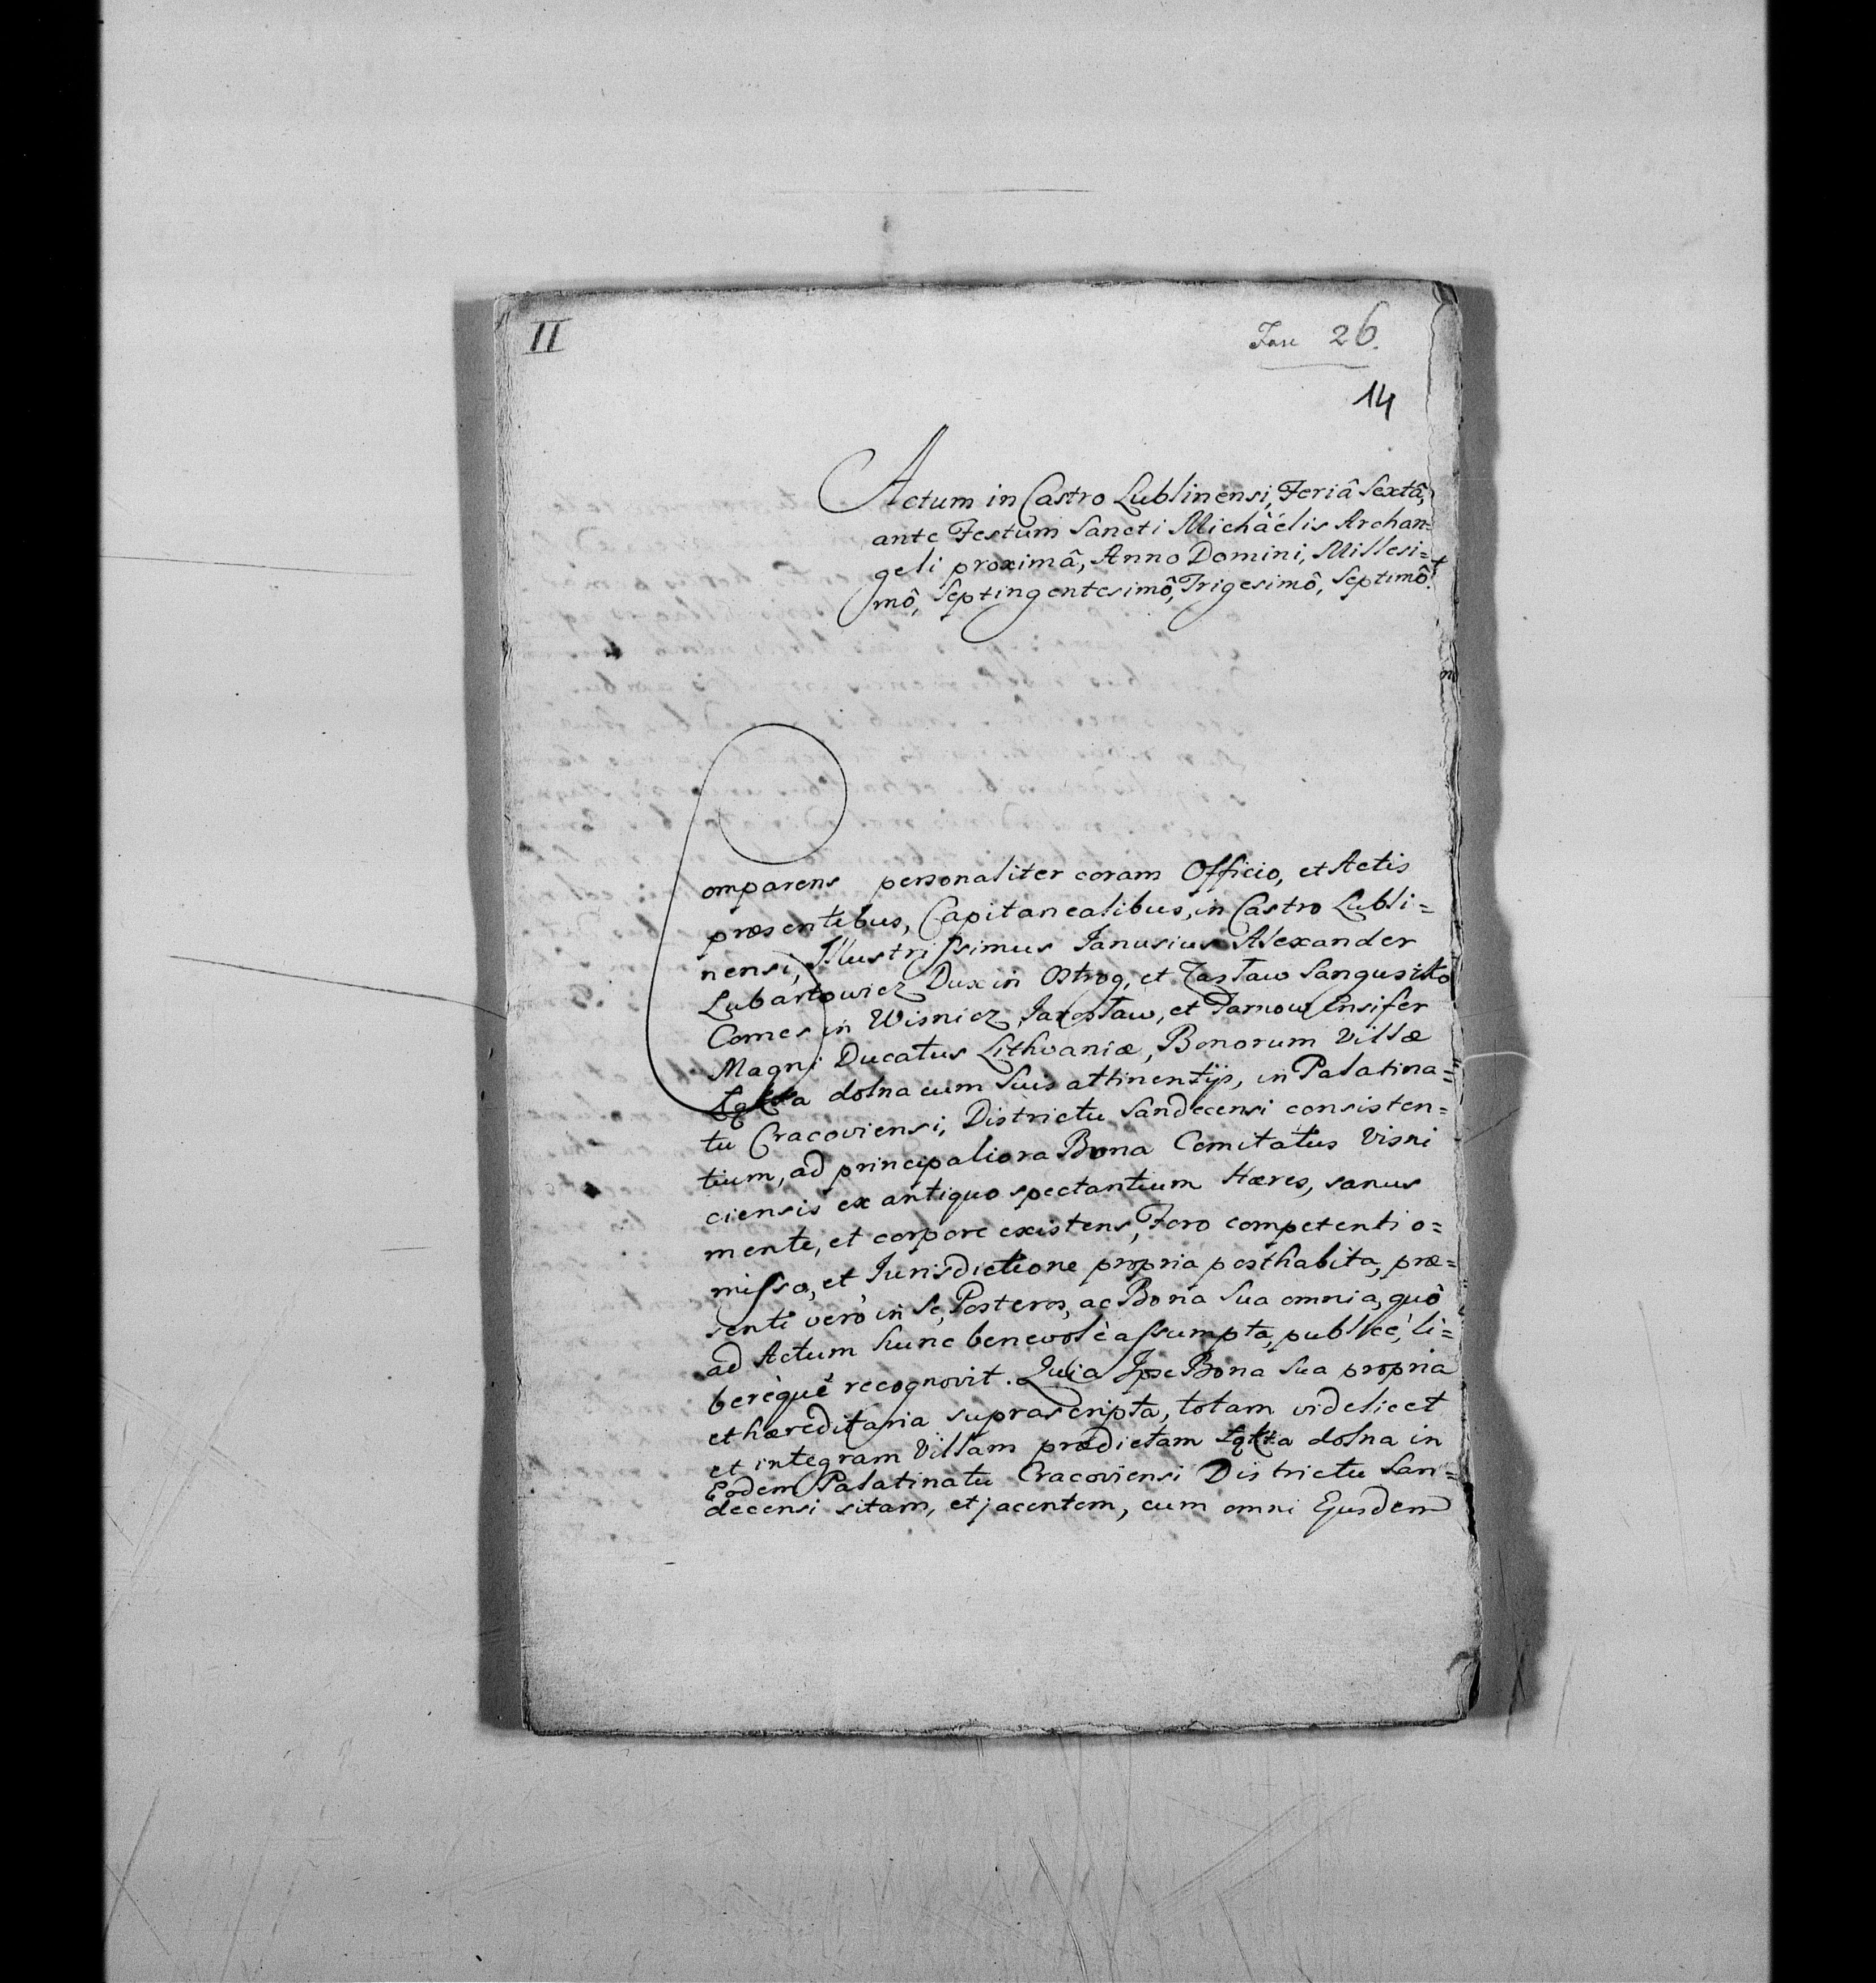 II
Fasc 26.
14
Actum in Castro Lublinensi, Feriâ Sextâ,
ante Festum Sancti Michäélis Archan=
geli proximâ, Anno Domini, Millesi=
mô, Septingentesimô, Trigesimô, Septimô.
Comparens personaliter coram Officio, et Actis
præsentibus, Capitanealibus, in Castro Lubli=
nensi, Illustrissimus Janusius Alexander
Lubartowicz Dux in Ostrog, et Zasław Sangusko
Comes in Wisnicz Jarosław, et Tarnow Ensifer
Magni Ducatus Lithvaniæ, Bonorum Villæ
Łąkta dolna cum suis attinentijs, in Palatina=
tu Cracoviensi, Districtu Sandecensi consisten=
tium, ad principaliora Bona Comitatus Visni
ciensis ex antiquo spectantium Hæres, sanus
mente, et corpore existens, Foro competenti o=
misso, et Jurisdictione propria posthabita, præ=
senti verò in se, Posteros, ac Bona sua omnia, quô
ad Actum hunc benevolè assumpta, publicè, li=
berèqué recognovit. Quia Ipse Bona sua propria
et hæreditaria suprascripta, totam videlicet
et integram Villam prædictam Łąkta dolna in
Eodem Palatinatu Cracoviensi Districtu San=
decensi sitam, et jacentem, cum omni Ejusdem